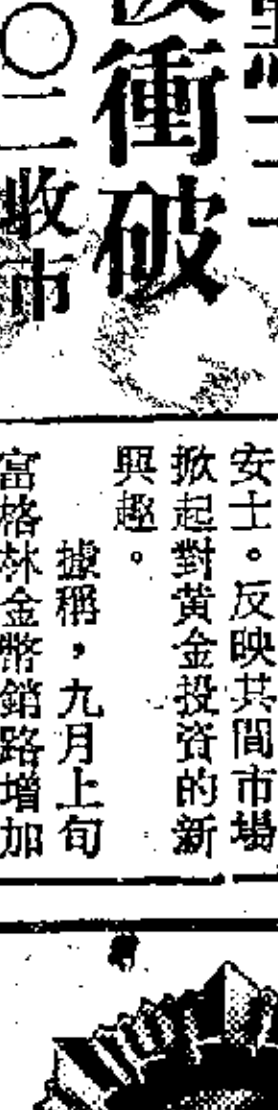 衝破
〇二收市
安士。反映其間市場
掀起對黃金投資的新
興趣。
據稱,九月上旬
富格林金幣銷路增加